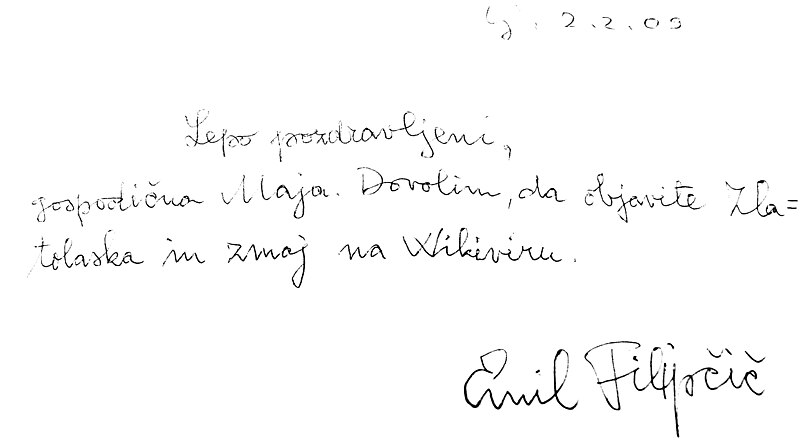 Lj. 2.2.09
Lepo pozdravljeni,
gospodična Maja. Dovolim, da objavite Zla=
tolaska in zmaj na Wikiviru.
Emil Filipčič